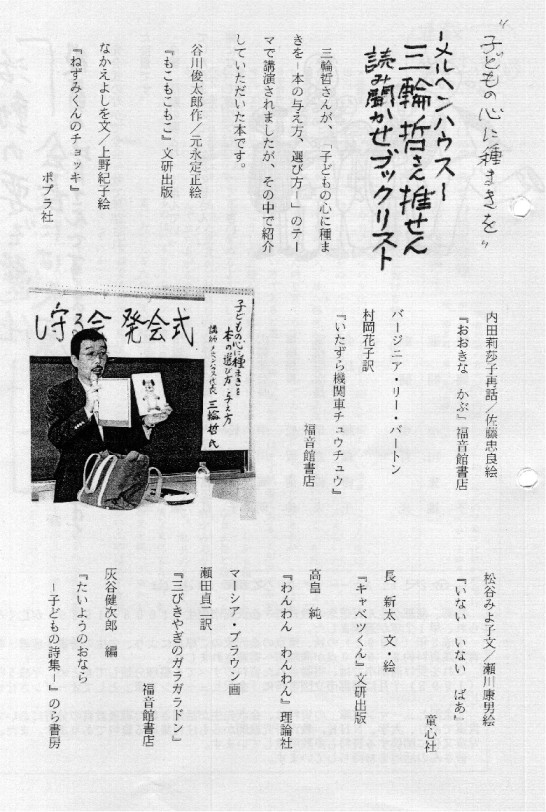 "子どもの心に種まきを"
ーメルヘンハウスー
三輪哲さん推せん
読み聞かせブックリスト
三輪哲さんが、「子どもの心に種ま
きを－本の与え方、選び方－」のテー
マで講演されましたが、その中で紹介
していただいた本です。
谷川俊太郎作／元永定正絵
『もこもこもこ』文研出版
なかえよしを文／上野紀子絵
『ねずみくんのチョッキ』
ポプラ社
内田莉莎子再話／佐藤忠良絵
『おおきな　かぶ』福音館書店
バージニア・リー・バートン
村岡花子訳
『いたずら機関車チュウチュウ』
福音館書店
し守る会 発会式
子どもの心に種まきを
本の選び方・与え方
講師 メルヘンハウス代表 三輪哲氏
松谷みよ子文／瀬川康男絵
『いない　いない　ばあ』
童心社
長　新太　文・絵
『キャベツくん』文研出版
高畠　純
『わんわん　わんわん』理論社
マーシア・ブラウン画
瀬田貞二訳
『三びきやぎのガラガラドン』
福音館書店
灰谷健次郎　編
『たいようのおなら
－子どもの詩集－』のら書房